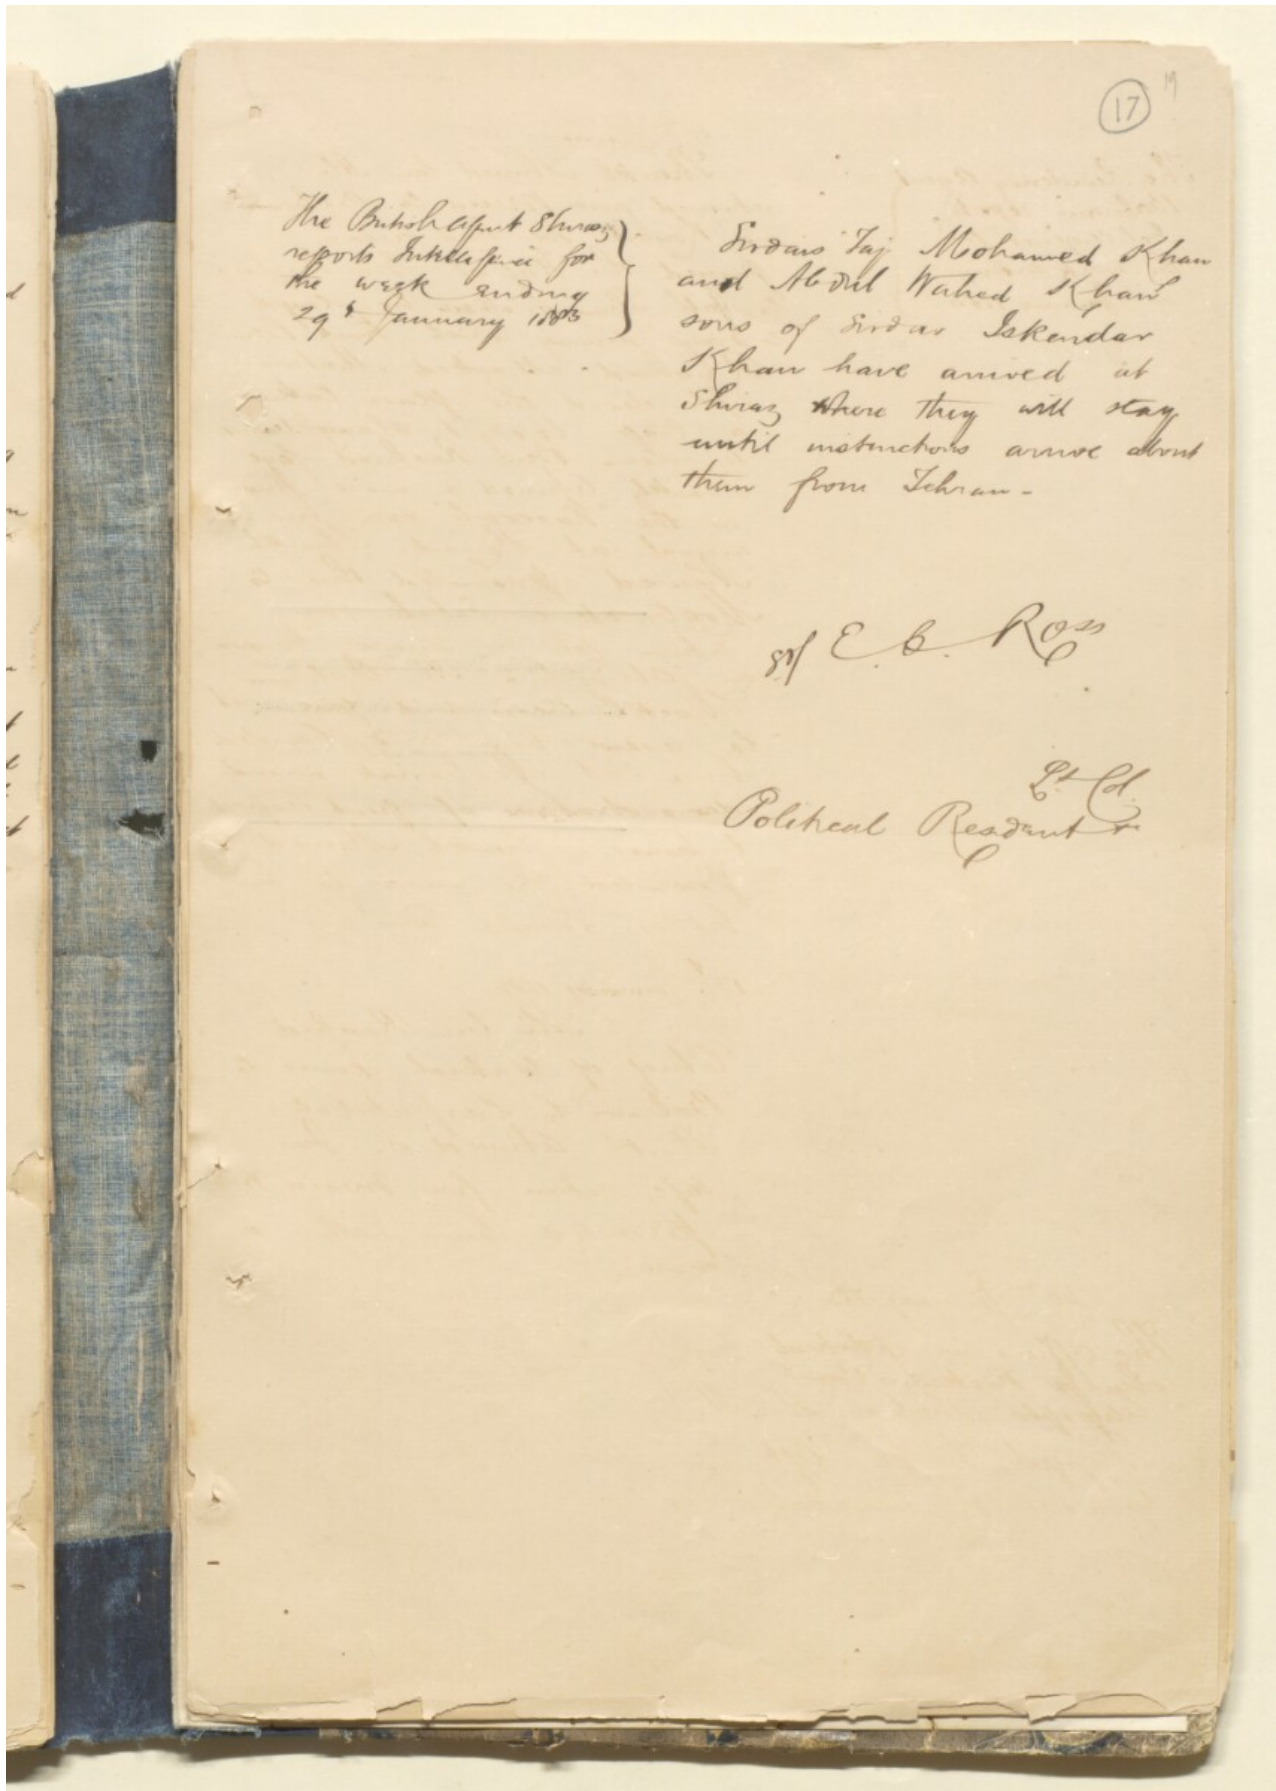 17
19
The British Agent Shiraz
reports Intelligence for
the week ending
29th January 1883
Sirdars Taj Mohamed Khan
and Abdul Wahed Khan
sons of Sirdar Iskendar
Khan have arrived at
Shiraz where they will stay
until instructions arrive about
them from Tehran -
E. C. Ross
Lt Col.
Political Resident